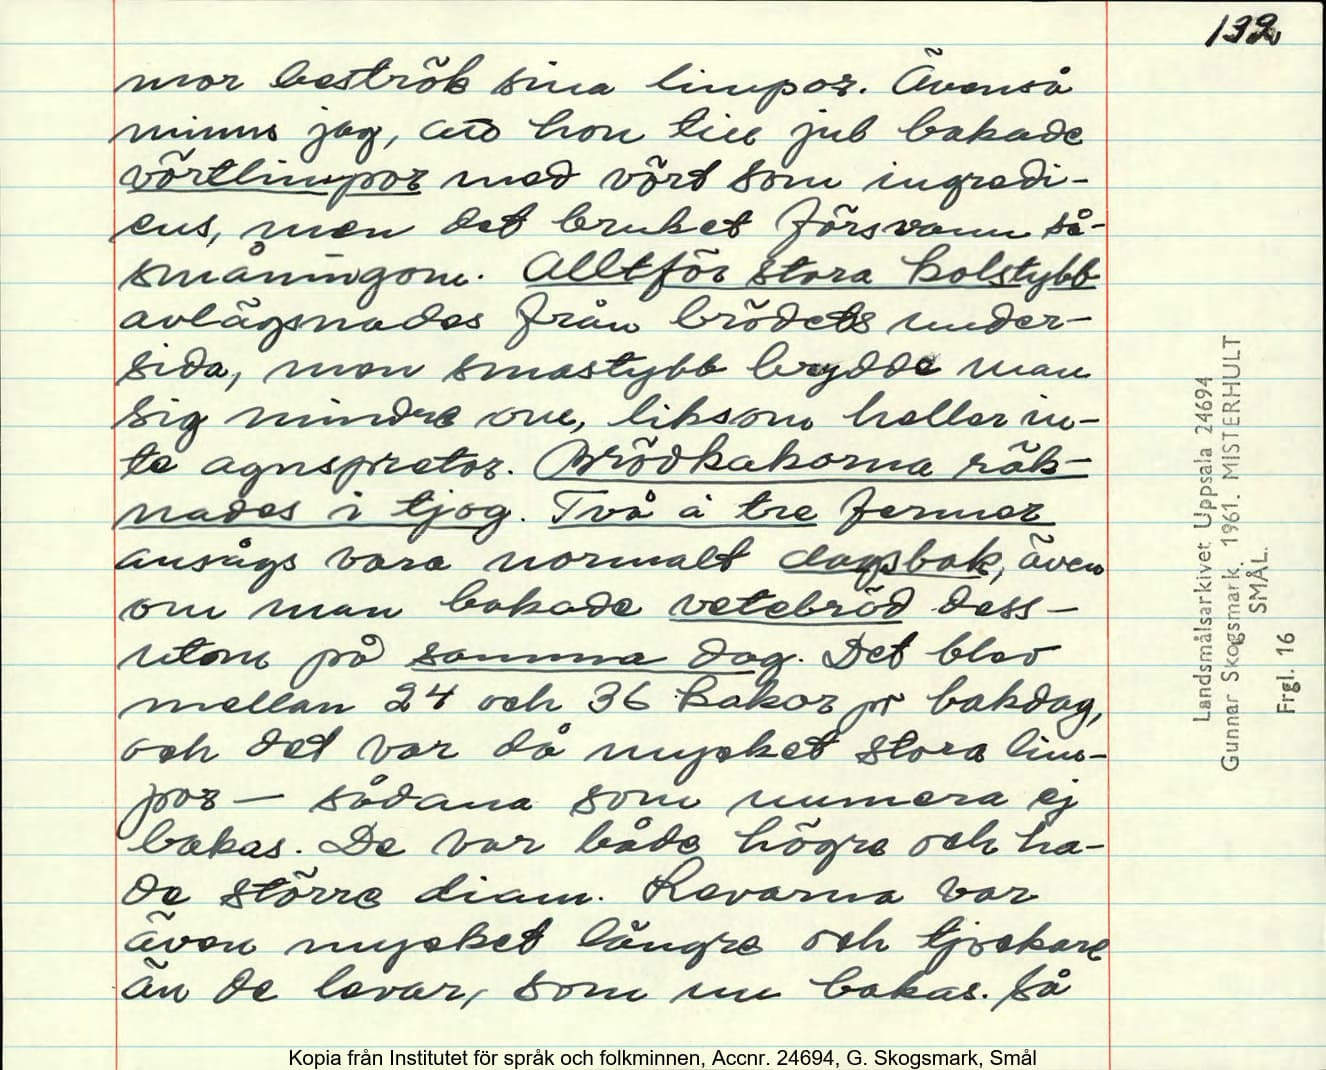 132.
mor beströk sina limpor. Ävenså
minns jag, att hon till jul bakade
vörtlimpor med vört som ingredi-
ens, men det bruket försvann så-
småningom. Alltför stora kolstybb
avlägsnades från brödets under-
sida, men smastybb brydde man
sig mindre om, liksom heller in-
te agnspretor. Brödkakorna räk-
nades i tjog. Två à tre fermor
ansågs vara normalt dagsbak, även
om man bakade vetebröd dess-
utom på samma dag. Det blev
mellan 24 och 36 kakor pr bakdag,
och det var då mycket stora lim-
por — sådana som numera ej
bakas. De var både högre och ha-
de större diam. Levarna var
även mycket längre och tjockare
än de levar, som nu bakas. Så
Landsmålsarkivet Uppsala 24694
Gunnar Skogsmark. 1961. MISTERHULT
SMÅL.
Frgl. 16
Kopia från Institutet för språk och folkminnen, Accnr. 24694, G. Skogsmark, Smål